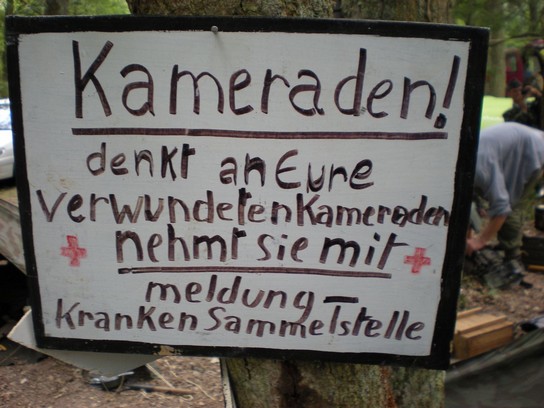 Kameraden!
denkt an Eure
verwundeten Kameraden
nehmt sie mit
meldung—
Kranken Sammelstelle